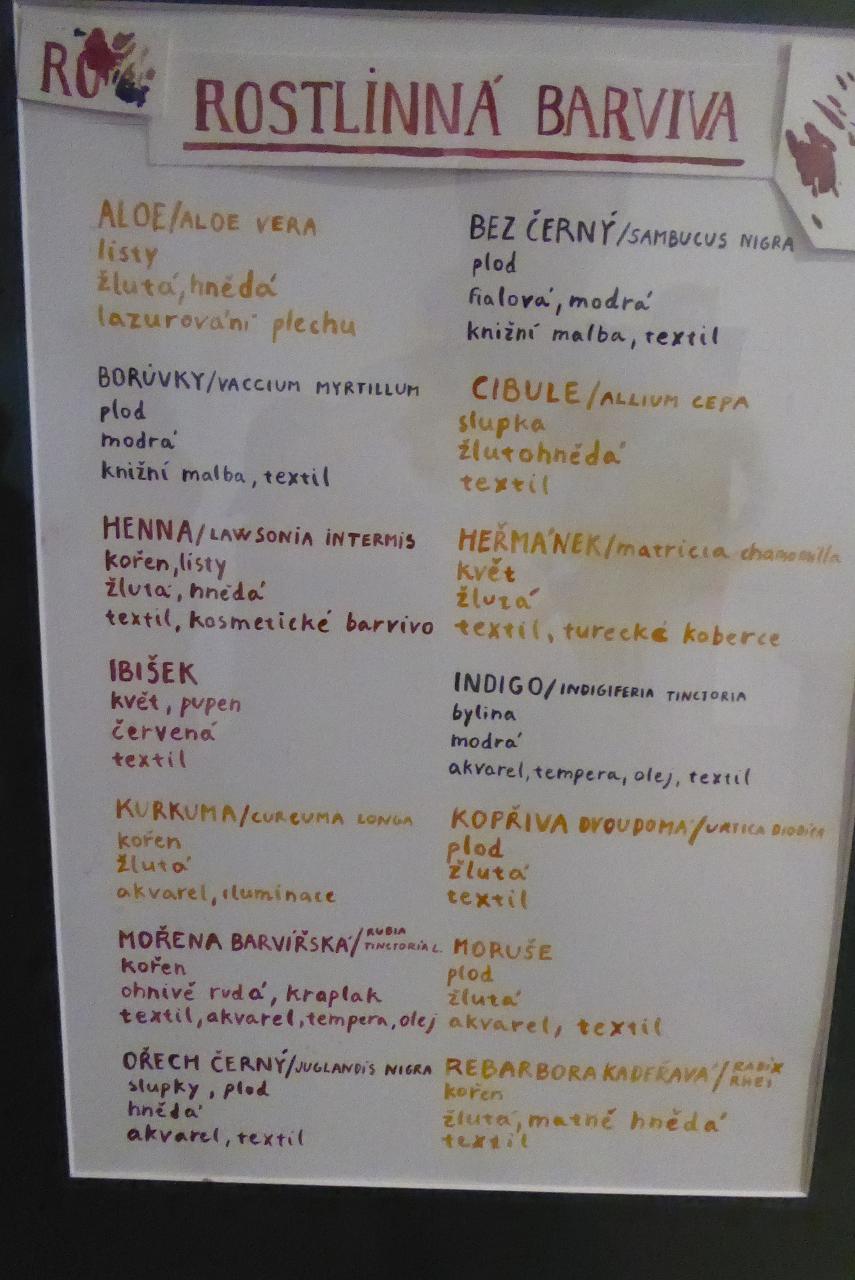 ROSTLINNÁ BARVIVA
ALOE/ALOE VERA
listy
žlutá, hnědá
lazurování plechu
BORŮVKY/VACCIUM MYRTILLUM
plod
modrá
knižní malba, textil
HENNA/LAWSONIA INTERMIS
kořen, listy
žlutá, hnědá
textil, kosmetické barvivo
IBIŠEK
květ, pupen
červená
textil
KURKUMA/CURCUMA LONGA
kořen
žlutá
akvarel, iluminace
MOŘENA BARVÍŘSKÁ/RUBIA TINCTORIA L.
kořen
ohnivě rudá, kraplak
textil, akvarel, tempera, olej
OŘECH ČERNÝ/JUGLANDIS NIGRA
slupky, plod
hnědá
akvarel, textil
BEZ ČERNÝ/SAMBUCUS NIGRA
plod
fialová, modrá
knižní malba, textil
CIBULE/ALLIUM CEPA
slupka
žlutohnědá
textil
HEŘMÁNEK/matricia chamomilla
květ
žlutá
textil, turecké koberce
INDIGO/INDIGIFERIA TINCTORIA
bylina
modrá
akvarel, tempera, olej, textil
KOPŘIVA DVOUDOMÁ/URTICA DIODICA
plod
žlutá
textil
MORUŠE
plod
žlutá
akvarel, textil
REBARBORA KADEŘAVÁ/RADIX RHEI
kořen
žlutá, matně hnědá
textil